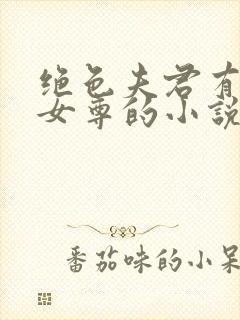 绝色夫君有
女尊的小説
番茄味的小呆